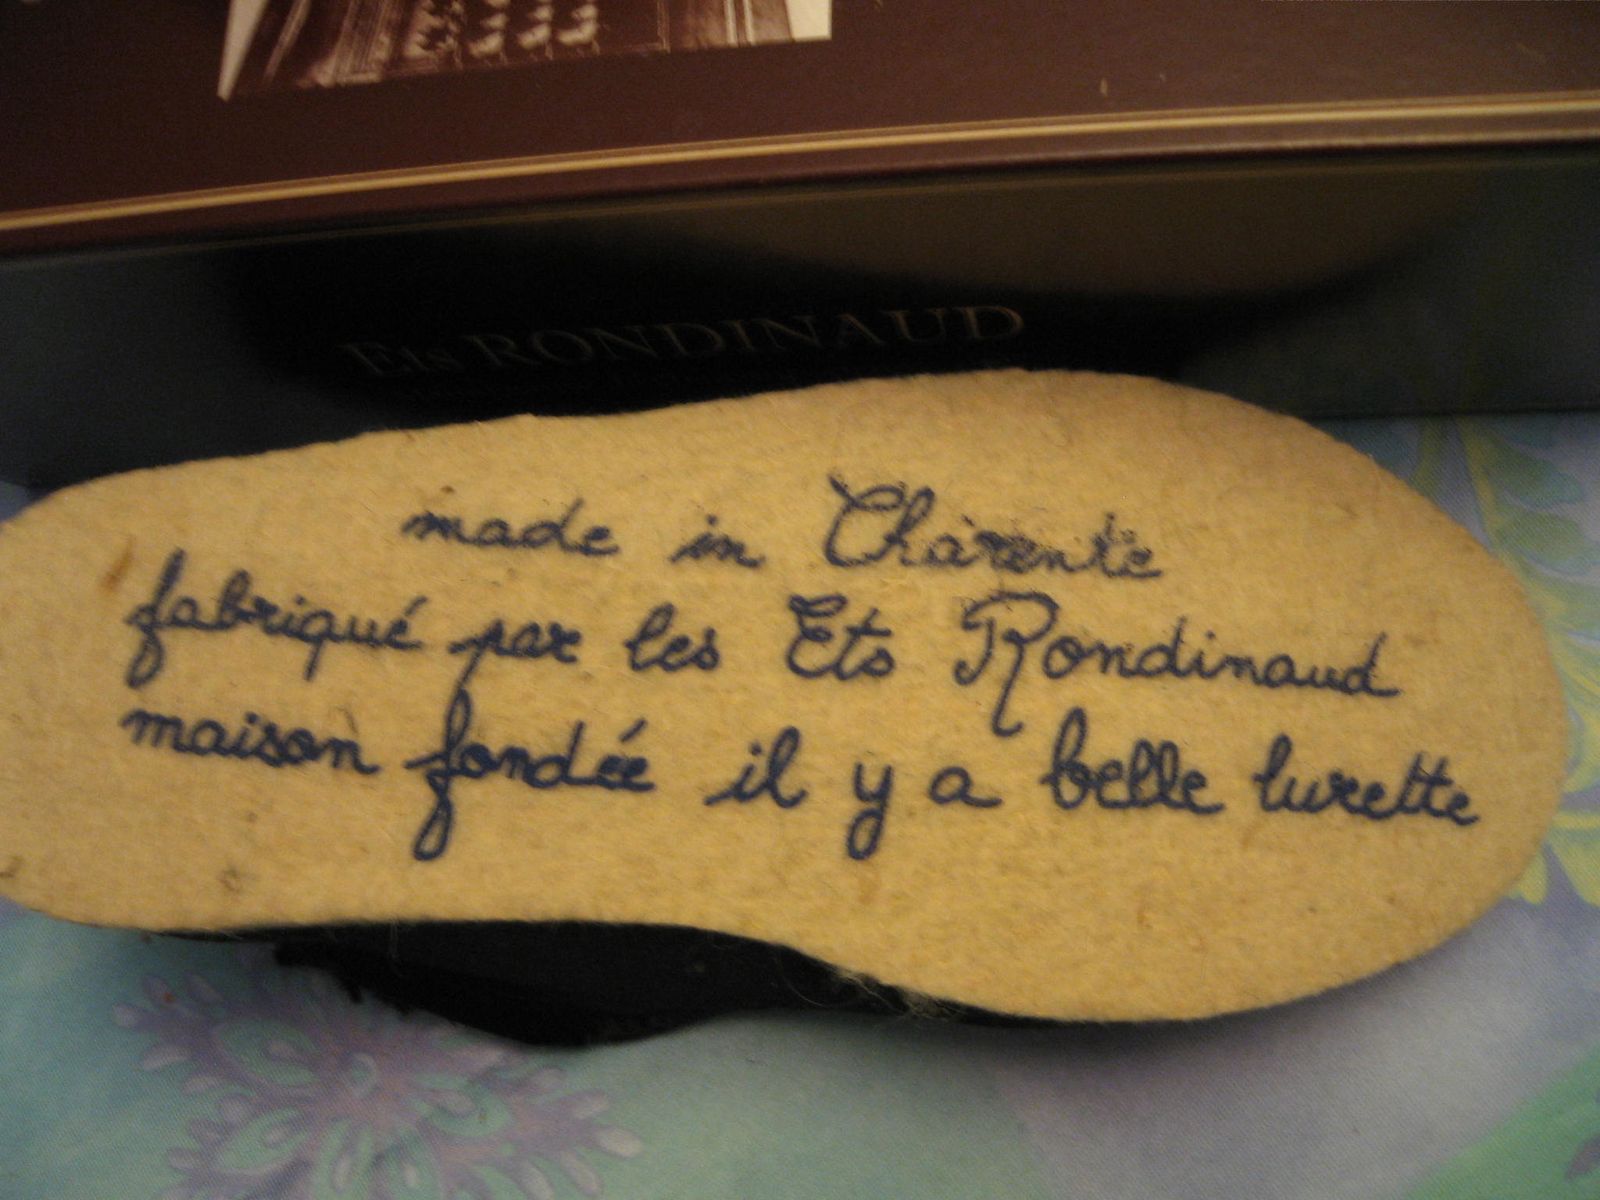 Ets RONDINAUD
made in Charente
fabriqué par les Ets Rondinaud
maison fondée il y a belle lurette